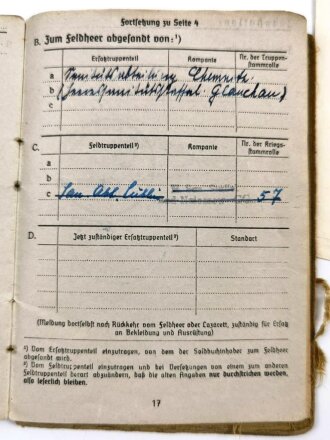 Fortsetzung zu Seite 4
B. Zum Feldheer abgesandt von:¹)
Ersatztruppenteil Kompanie Nr. der Truppenstammrolle
a Sanitätsabteilung Chemnitz
b (Heeressanitätsstaffel Glauchau)
c
C. Feldtruppenteil²) Kompanie Nr. der Kriegsstammrolle
a
b
c San. Abt. 57
D. Jetzt zuständiger Ersatztruppenteil³) Standort
(Meldung dortselbst nach Rückkehr vom Feldheer oder Lazarett, zuständig für Ersatz
an Bekleidung und Ausrüstung)
¹) Vom Ersatztruppenteil einzutragen, von dem der Soldbuchinhaber zum Feldheer
abgesandt wird.
²) Vom Feldtruppenteil einzutragen und bei Versetzungen von einem zum anderen
Feldtruppenteil derart abzuändern, daß die alten Angaben nur durchstrichen werden,
also leserlich bleiben.
17